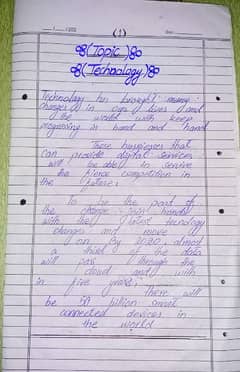 (1)
(Topic)
(Technology)
Technology has brought many
changes in our lives and
the world will keep
progressing in hand and hand
Those businesses that
can provide digital services
will be able to survive
the fierce competition in
the future.
To be the part of
the change join hands
with the latest tecnology
changes and move
on By 2020 almost
a third of the data
will pass through the
cloud and with
in five years, There will
be 50 billion smart
connected devices in
the world